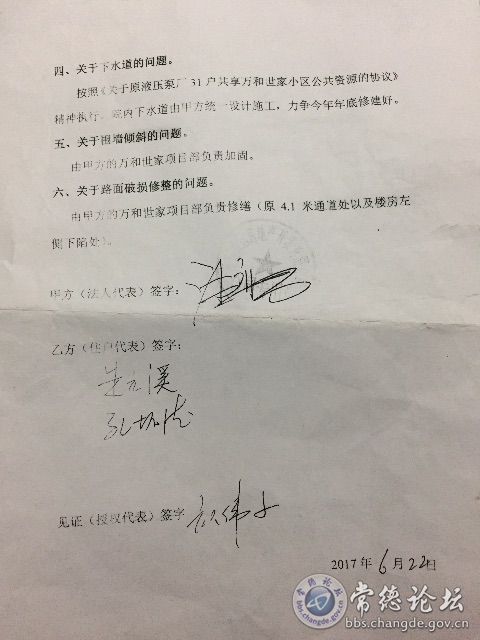 四、关于下水道的问题。
按照《关于原液压泵厂31户共享万和世家小区公共资源的协议》
精神执行，院内下水道由甲方统一设计施工，力争今年年底修建好。
五、关于围墙倾斜的问题。
由甲方的万和世家项目部负责加固。
六、关于路面破损修整的问题。
由甲方的万和世家项目部负责修缮（原 4.1 米通道处以及楼房左
侧下陷处）。
甲方（法人代表）签字：
乙方（住户代表）签字：
见证（授权代表）签字
2017年6月22日
常德论坛
bbs.changde.gov.cn